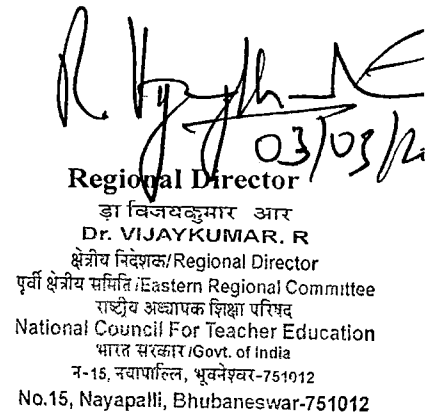 R. Vijay
03/03/20
Regional Director
ड़ा विजयकुमार आर
Dr. VIJAYKUMAR. R
क्षेत्रीय निदेशक/Regional Director
पूर्वी क्षेत्रीय समिति/Eastern Regional Committee
राष्ट्रीय अध्यापक शिक्षा परिषद
National Council For Teacher Education
भारत सरकार/Govt. of India
न-15, नयापल्लि, भूवनेश्वर-751012
No.15, Nayapalli, Bhubaneswar-751012